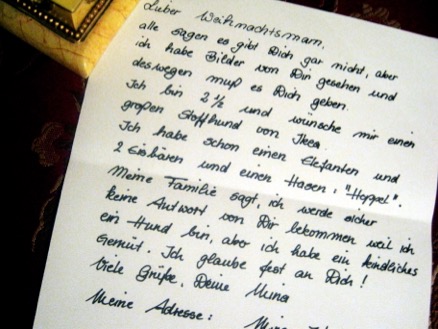 Lieber Weihnachtsmann,
alle sagen es gibt Dich gar nicht, aber
ich habe Bilder von Dir gesehen und
deswegen muß es Dich geben.
Ich bin 2 ½ und wünsche mir einen
großen Stoffhund von Ikea.
Ich habe schon einen Elefanten und
2 Eisbären und einen Hasen: "Hoppel".
Meine Familie sagt, ich werde sicher
keine Antwort von Dir bekommen weil ich
ein Hund bin, aber ich habe ein kindliches
Gemüt. Ich glaube fest an Dich!
Viele Grüße, Deine Mina
Meine Adresse: